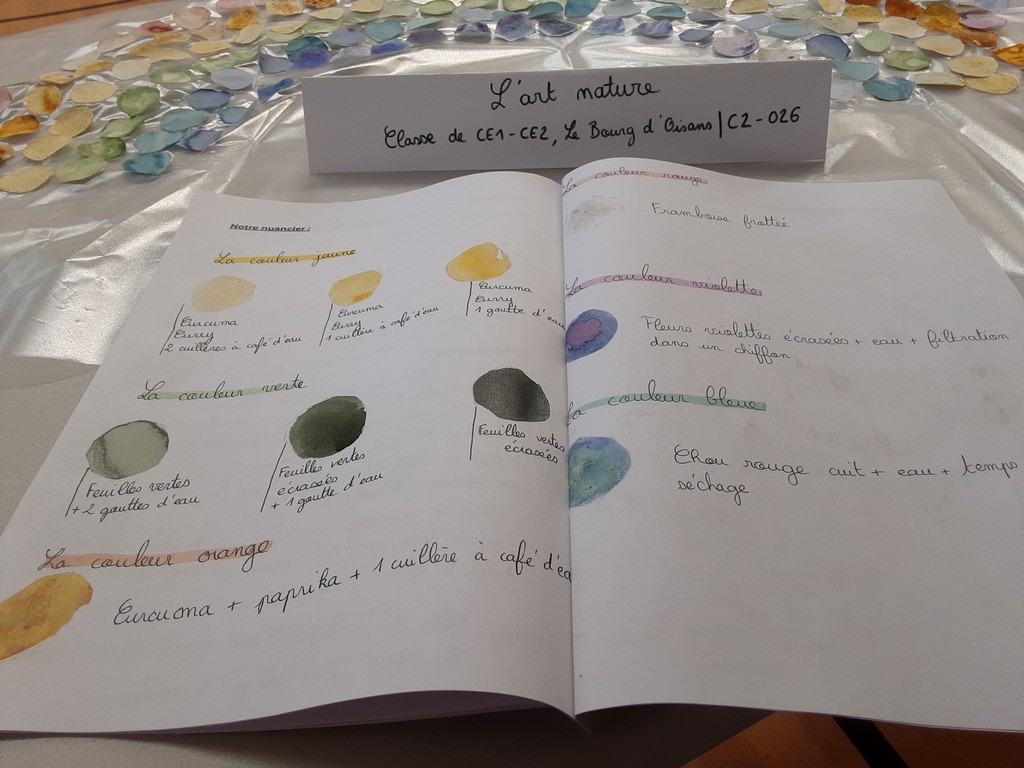 L'art nature
Classe de CE1-CE2, Le Bourg d'Oisans | C2-026
Notre nuancier :
La couleur jaune
Curcuma
Curry
2 cuillères à café d'eau
Curcuma
Curry
1 cuillère à café d'eau
Curcuma
Curry
1 goutte d'eau
La couleur verte
Feuilles vertes
+ 2 gouttes d'eau
Feuilles vertes
écrasées
+ 1 goutte d'eau
Feuilles vertes
écrasées
La couleur orange
Curcuma + paprika + 1 cuillère à café d'ea
La couleur rouge
Framboise frottée
La couleur violette
Fleurs violettes écrasées + eau + filtration
dans un chiffon
La couleur bleue
Chou rouge cuit + eau + temps
séchage